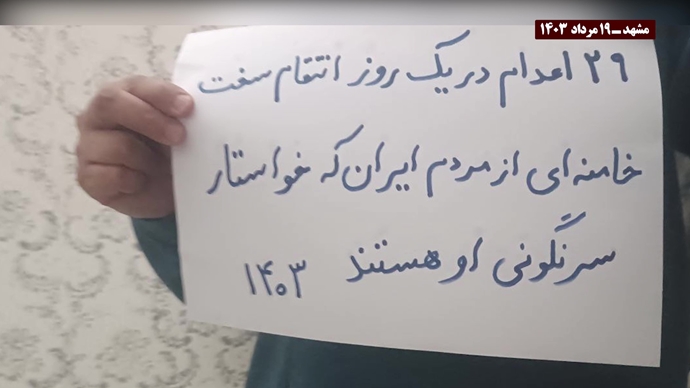 مشهد ــ ۱۹ مرداد ۱۴۰۳
۲۹ اعدام در یک روز انتقام سخت
خامنه‌ای از مردم ایران که خواستار
سرنگونی او هستند ۱۴۰۳